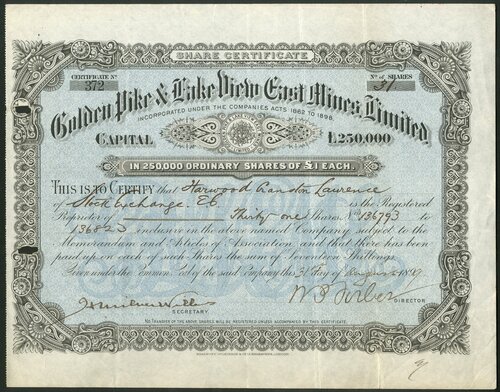 SHARE CERTIFICATE
CERTIFICATE No
372
No of SHARES
31
Golden Pike & Lake View East Mines, Limited.
INCORPORATED UNDER THE COMPANIES ACTS 1862 TO 1898.
CAPITAL £250,000
IN 250,000 ORDINARY SHARES OF £1 EACH.
THIS IS TO CERTIFY that Harwood Cranston Lawrence
of Stock Exchange. E.C. is the Registered
Proprietor of Thirty one Shares No 136793 to
136823 inclusive in the above named Company subject to the
Memorandum and Articles of Association and that there has been
paid up on each of such Shares the sum of Seventeen Shillings.
Given under the Common Seal of the said Company this 31st day of August 1899
SECRETARY.
DIRECTOR
NO TRANSFER OF THE ABOVE SHARES WILL BE REGISTERED UNLESS ACCOMPANIED BY THIS CERTIFICATE.